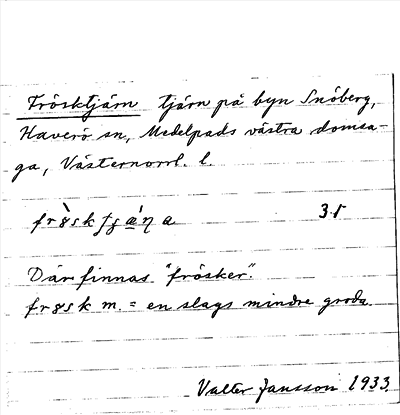 Frösktjärn tjärn på byn Snöberg,
Haverö sn, Medelpads västra domsa-
ga, Västernorrl. l.
frøskʃɟæ̀ŋa 3.5
Där finnas "frösker".
frøsk m. = en slags mindre groda
Valter Jansson 1933.